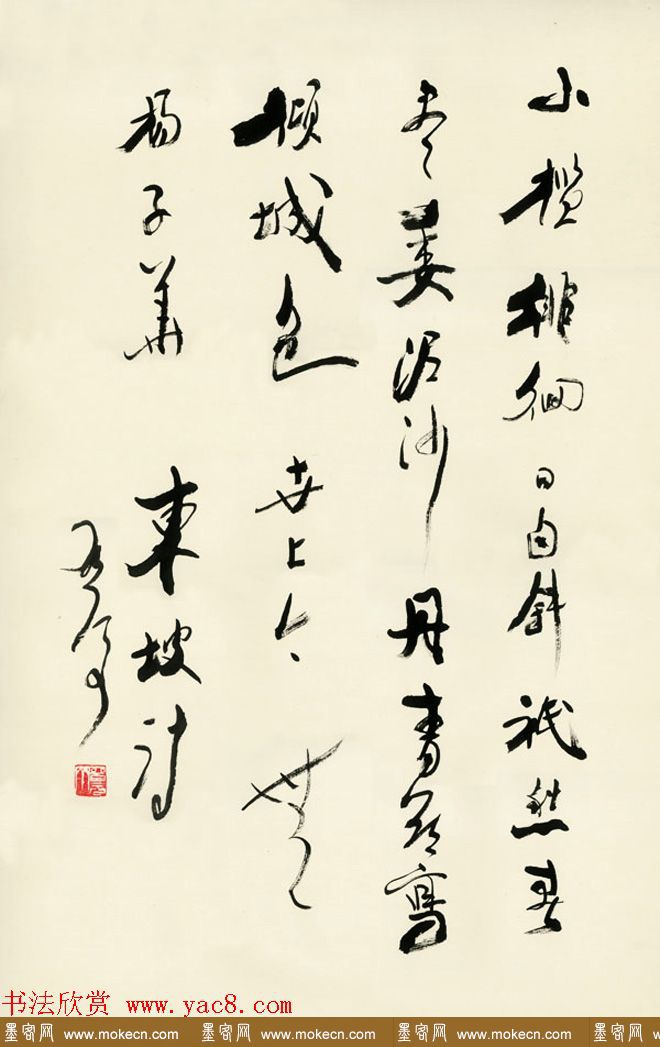 小檻徘徊日自斜祇愁春
尽委泥沙丹青欲寫
傾城色世上今無
楊子華 東坡詩
书法欣赏 www.yac8.com
墨客网 www.mokecn.com 墨客网 www.mokecn.com 墨客网 www.mokecn.com 墨客网